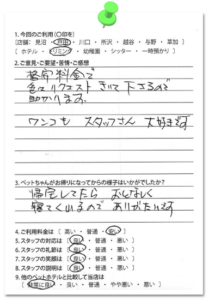 1.今回のご利用(○印を)
[店舗: 見沼 ・ 戸田 ・ 川口 ・ 所沢 ・ 越谷 ・ 与野 ・ 草加 ]
[ ホテル ・ トリミング ・ 幼稚園 ・ シッター ・ 一時預かり ]
2.ご意見・ご要望・苦情・ご感想
格安料金で
色々リクエスト きいて 下さるので
助かります。
ワンコも スタッフさん 大好きです
3.ペットちゃんがお帰りになってからの様子はいかがでしたか?
帰宅してからも おとなしく
寝ているので ありがたいです
4.ご利用料金は [ 高い ・ 普通 ・ 安い ]
5.スタッフの対応は [ 良い ・ 普通 ・ 悪い ]
6.スタッフの気配は [ 良い ・ 普通 ・ 悪い ]
7.スタッフの礼節は [ 良い ・ 普通 ・ 悪い ]
8.スタッフの説明は [ 良い ・ 普通 ・ 悪い ]
9.他のペットホテルと比較して当店は
[ 非常に良い ・ 良い ・ 普通 ・ やや悪い ・ 悪い ]